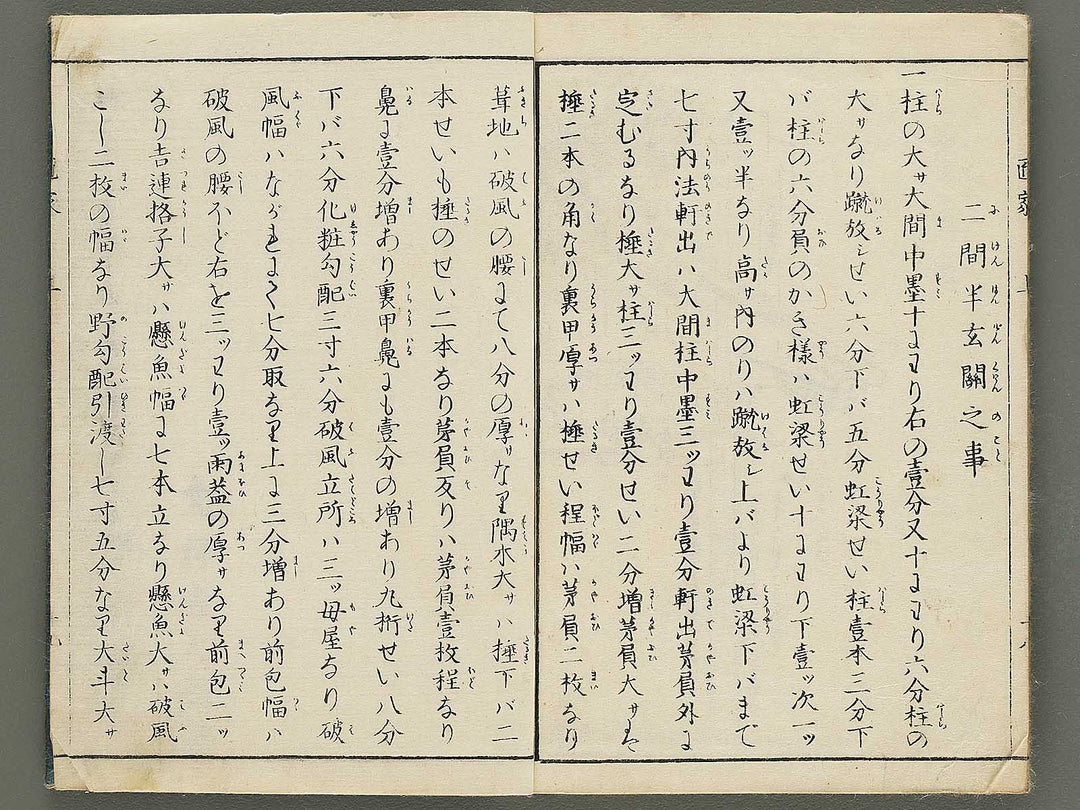 二間半玄關之事
一柱の大サ大間中墨十にわり右の壹分又十にわり六分柱の
大サなり蹴放シせい六分下バ五分虹梁せい柱壹本三分下
バ柱の六分員のかき様ハ虹梁せい十にわり下壹ッ次一ッ
又壹ッ半なり高サ內のりハ蹴放シ上バより虹梁下バまで
七寸內法軒出ハ大間柱中墨三ッわり壹分軒出茅員外に
定むるなり捶大サ柱三ッわり壹分せい二分増茅員大サは
捶二本の角なり裏甲厚サハ捶せい程幅ハ茅員二枚なり
葺地ハ破風の腰にて八分の厚サなり隅木大サハ捶下バ二
本せいも捶のせい二本なり茅員反りハ茅員壹枚程なり
鼻に壹分増あり裏甲鼻にも壹分の増あり丸桁せい八分
下バ六分化粧勾配三寸六分破風立所ハ三ッ母屋なり破
風幅ハながれにて七分取なり上に三分増あり前包幅ハ
破風の腰ほど右を三ッわり壹ッ雨葢の厚サなり前包二ッ
なり吉連格子大サハ懸魚幅に七本立なり懸魚大サハ破風
こし二枚の幅なり野勾配引渡し七寸五分なり大斗大サ